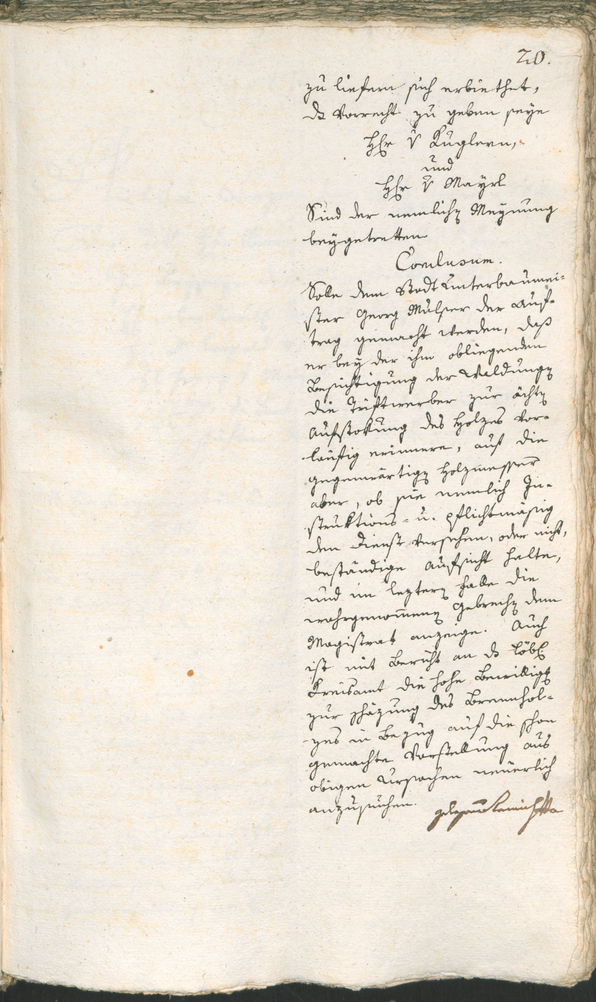 20.
zu liefern sich erbiethet,
dz Vorrecht zu geben seye
Hr v Kuglern,
und
Hr v Mayrl
Sind der nemlichen Meynung
beygetretten
Conclusum.
Solle dem Stadt Unterbaumei-
ster Georg Mülser der Auf-
trag gemacht werden, daß
er bey der ihm obliegenden
Besichtigung der Waldungen
die Triftwerber zur ächten
Aufstokung des Holzes vor-
läufig erinnere, auf die
gegenwärtigen Holzmesser
aber, ob sie nemlich In-
struktions- u. pflichtmäsig
den Dienst versehen, oder nicht,
beständige Aufsicht halte,
und im leztern Falle die
wahrgenommenen Gebrechen dem
Magistrat anzeige. Auch
ist mit Bericht an dz löbl
Kreisamt die hohe Bewilligg
zur Schäzung des Brennhol-
zes in Bezug auf die schon
gemachte Vorstellung aus
obigen Ursachen neuerlich
anzusuchen.